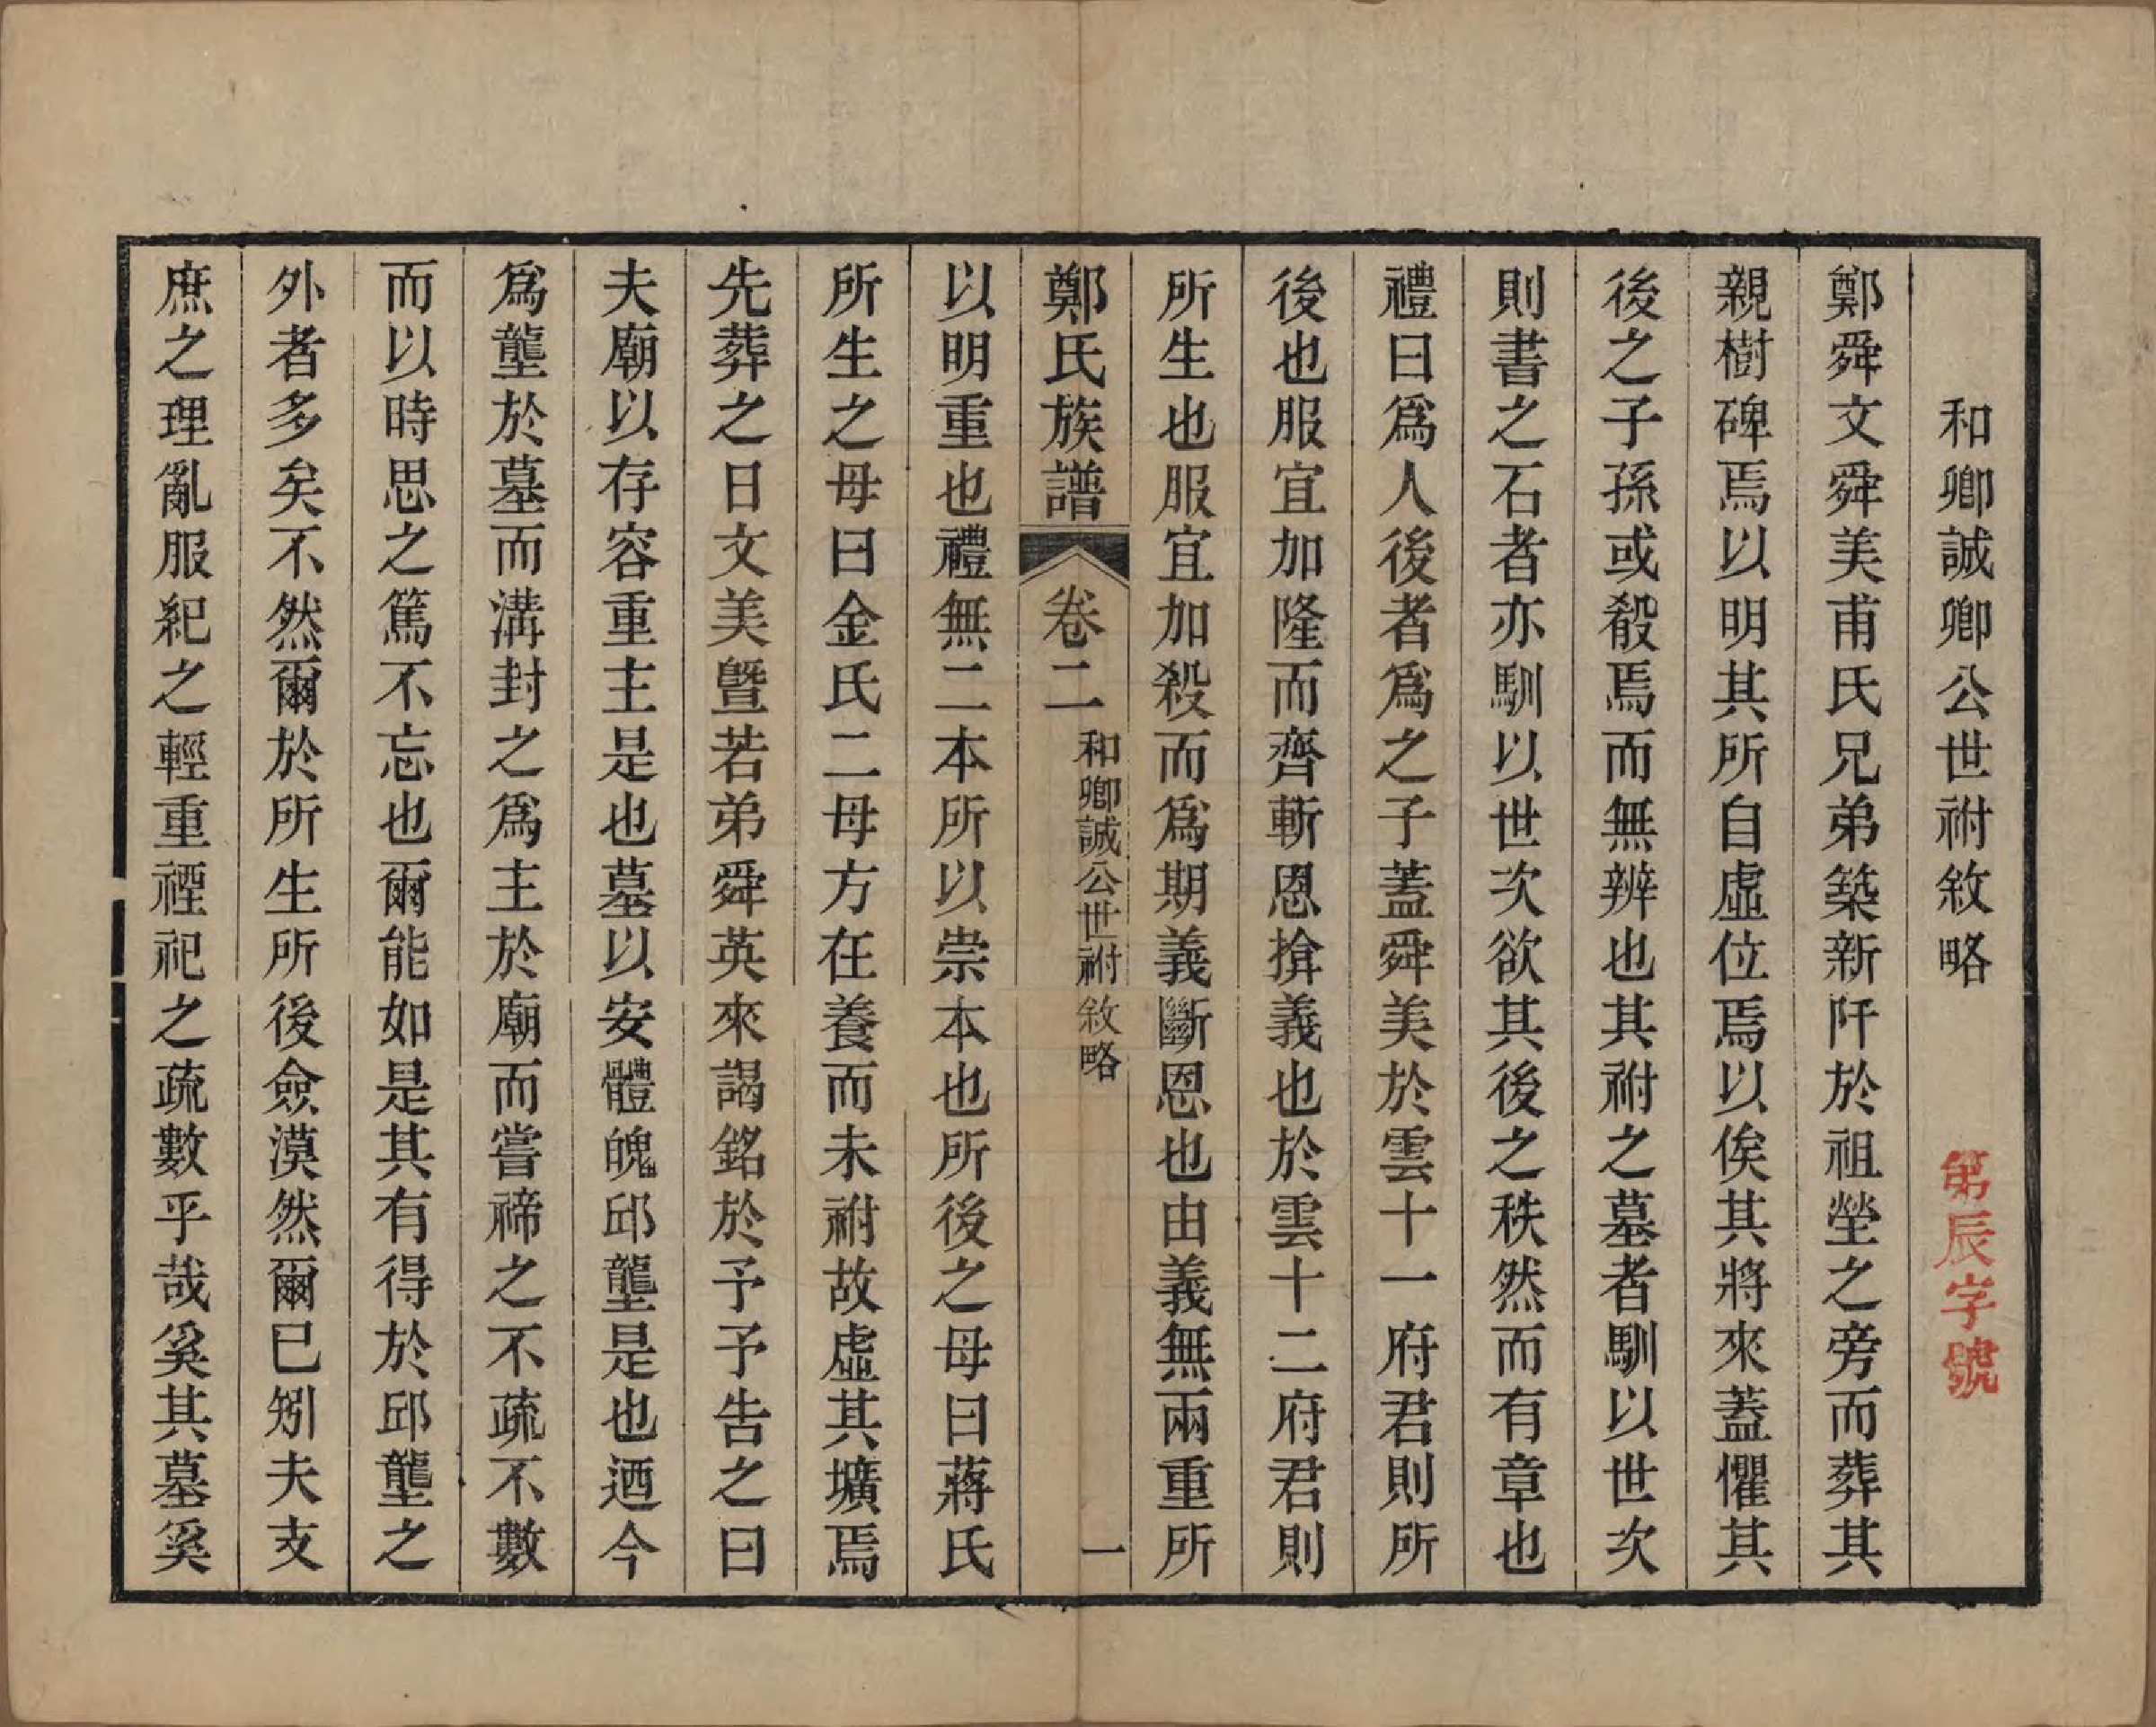 和卿誠卿公世祔敘略
第辰字號
鄭舜文舜美甫氏兄弟築新阡於祖塋之旁而葬其
親樹碑焉以明其所自虛位焉以俟其將來蓋懼其
後之子孫或殽焉而無辨也其祔之墓者馴以世次
則書之石者亦馴以世次欲其後之秩然而有章也
禮曰爲人後者爲之子蓋舜美於雲十一府君則所
後也服宜加隆而齊斬恩揜義也於雲十二府君則
所生也服宜加殺而爲期義斷恩也由義無兩重所
鄭氏族譜
卷二
和卿誠公世祔敘略
一
以明重也禮無二本所以崇本也所後之母曰蔣氏
所生之母曰金氏二母方在養而未祔故虛其壙焉
先葬之日文美曁若弟舜英來謁銘於予予告之曰
夫廟以存容重主是也墓以安體魄邱壟是也迺今
爲壟於墓而溝封之爲主於廟而嘗禘之不疏不數
而以時思之篤不忘也爾能如是其有得於邱壟之
外者多矣不然爾於所生所後僉漠然爾已矧夫支
庶之理亂服紀之輕重禋祀之疏數乎哉奚其墓奚